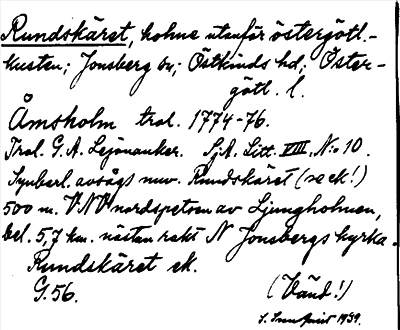 Rundskäret, holme utanför östergötl.-
kusten; Jonsberg sn; Östkinds hd; Öster-
götl. l.
Åmsholm trol. 1774-76.
Trol. G. A. Lejonanker. SjA. Litt. VIII, No 10.
Synbarl. avsågs nuv. Rundskäret (se ek!)
500 m. VNV nordspetsen av Ljungholmen,
bel. 5,7 km. nästan rakt N Jonsbergs kyrka.
Rundskäret ek.
G. 56.
(Vänd!)
1939.